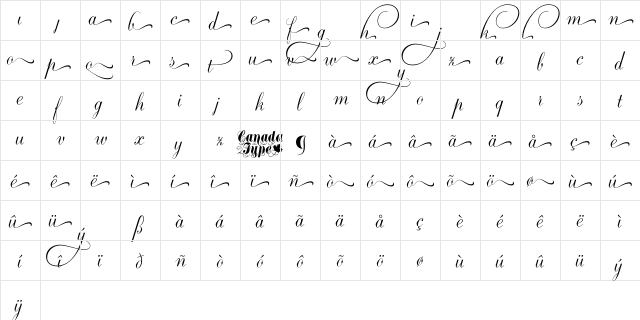 ı ȷ a b c d e f g h i j k l m n
o p q r s t u v w x y z a b c d
e f g h i j k l m n o p q r s t
u v w x y z Canada Type g à á â ã ä å ç è
é ê ë ì í î ï ñ ò ó ô õ ö ø ù ú
û ü ý ß à á â ã ä å ç è é ê ë ì
í î ï ð ñ ò ó ô õ ö ø ù ú û ü ý
ÿ